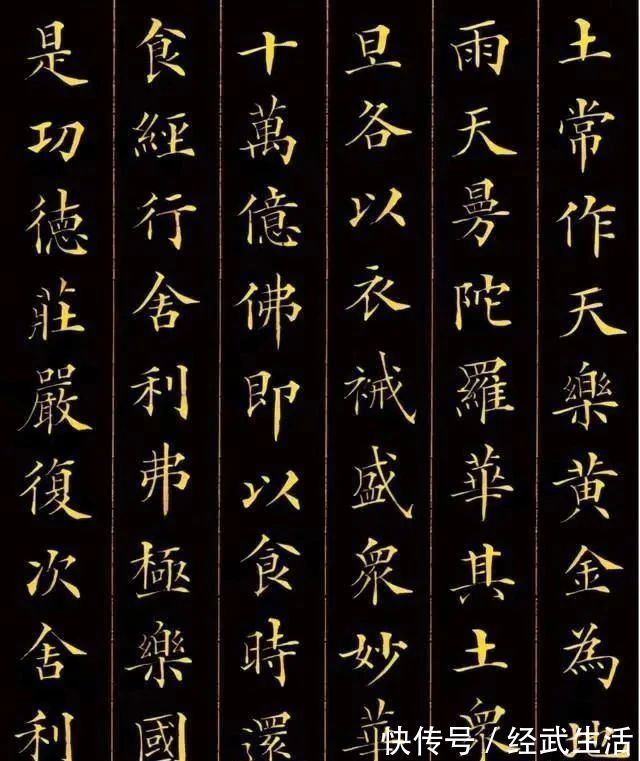 土常作天樂黄金為地
雨天曼陀羅華其土衆
旦各以衣裓盛衆妙華
十萬億佛即以食時還
食經行舍利弗極樂國
是功德莊嚴復次舍利
快传号/经武生活